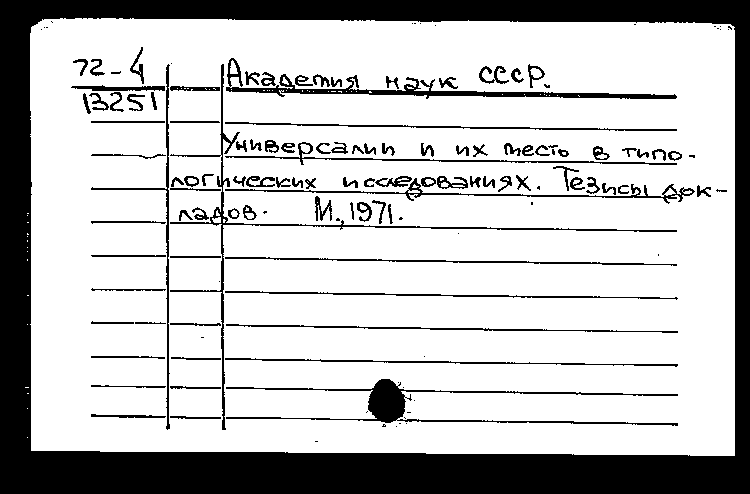 72-4
13251
Академия наук СССР.
Универсалии и их место в типо-
логических исследованиях. Тезисы док-
ладов. М., 1971.